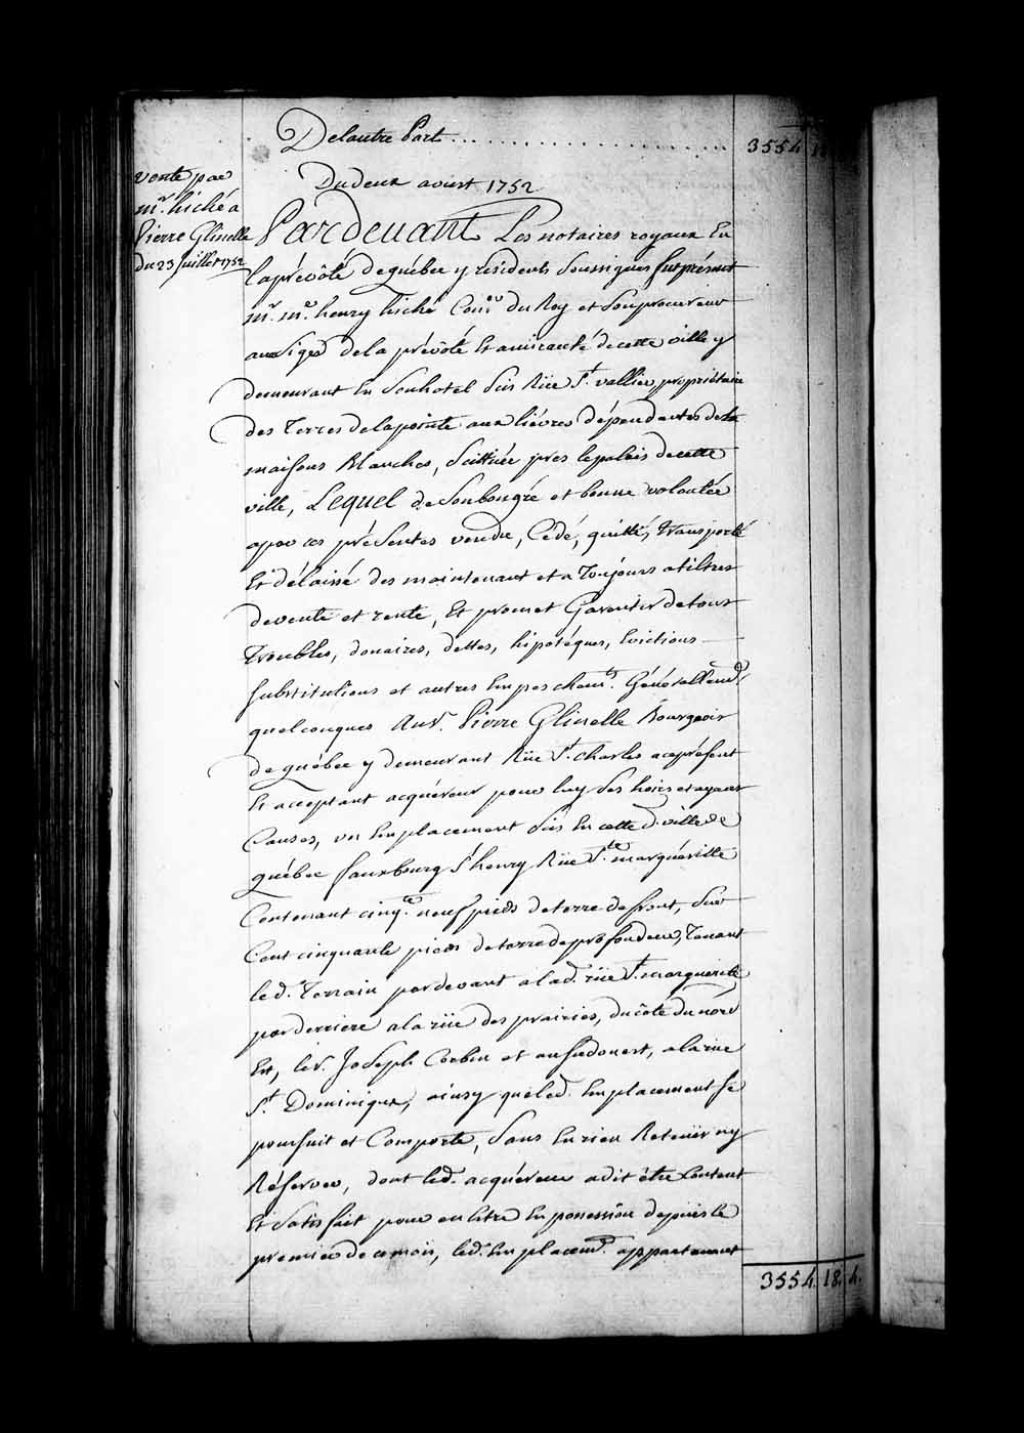 Delautre Part .......................... 3554 18
vente par
mr. hiché a
Pierre Glinelle
du 23 Juillet 1752
Du deux aoust 1752
Pardevant Les notaires royaux En
la prévôté de québec y résidents Soussignés fut présent
mr. me. henry hiché Coner. du Roy et Son procureur
aux Siges de la prévôté Et amirauté de cette ville y
demeurant En Son hotel Sis Rüe St. vallier, propriétaire
des Terres de la pointe aux liévres dépendantes de la
maison Blanche, Scittuée pres le palais de cette
ville, Lequel de Son bon gré et bonne volontée
a par ces présentes vendu, Cédé, quitté, Transporté
Et délaissé des maintenant et a Toujours a tiltres
de vente et rente, Et promet Garentir de tous
Troubles, donaires, dettes, hipotéques, Evictions
Substitutions et autres Empeschemts. Générallemt.
quelconques Au Sr. Pierre Glinelle Bourgeois
de québec y demeurant Rüe St. charles a ce présent
Et acceptant acquéreur pour luy Ses hoirs et ayans
Causes, un Emplacement Sis En cette d. ville de
québec fauxbourg St henry Rüe Ste. marguéritte
Contenant cinqte. neuf pieds de terre de front, Sur
Cent cinquante pieds de terre de profondeur, Tenant
led. Terrain par devant a lad. rüe Ste. marguerite
par derriere a la rüe des prairies, du côté du nord
Est, le Sr. Joseph Corbin et au Sudouest, a la rüe
St. Dominique, ainsy que led. Emplacement Se
poursuit et Comporte, Sans En rien Retenir ny
Réserver, dont led. acquéreur a dit être Content
Et Satisfait pour en être En possession depuis le
premier de ce mois, led. Emplacemt. appartenant
3554. 18. 4.